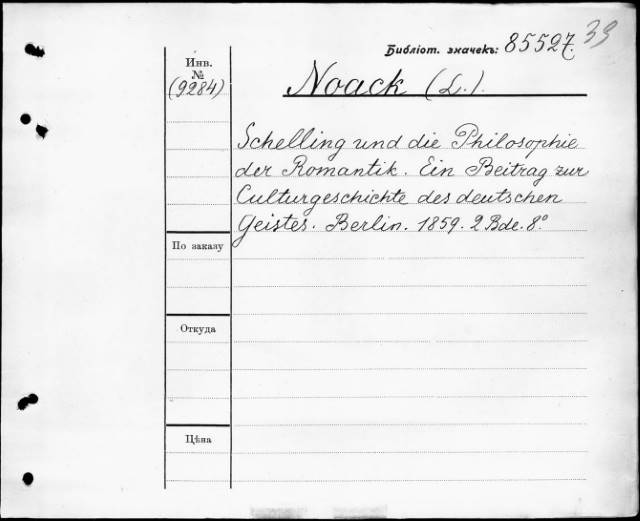 Библіот. значекъ: 85527. 33
Инв.
№
(9284)
Noack (L.).
Schelling und die Philosophie
der Romantik. Ein Beitrag zur
Culturgeschichte des deutschen
Geistes. Berlin. 1859. 2 Bde. 8°
По заказу
Откуда
Цѣна